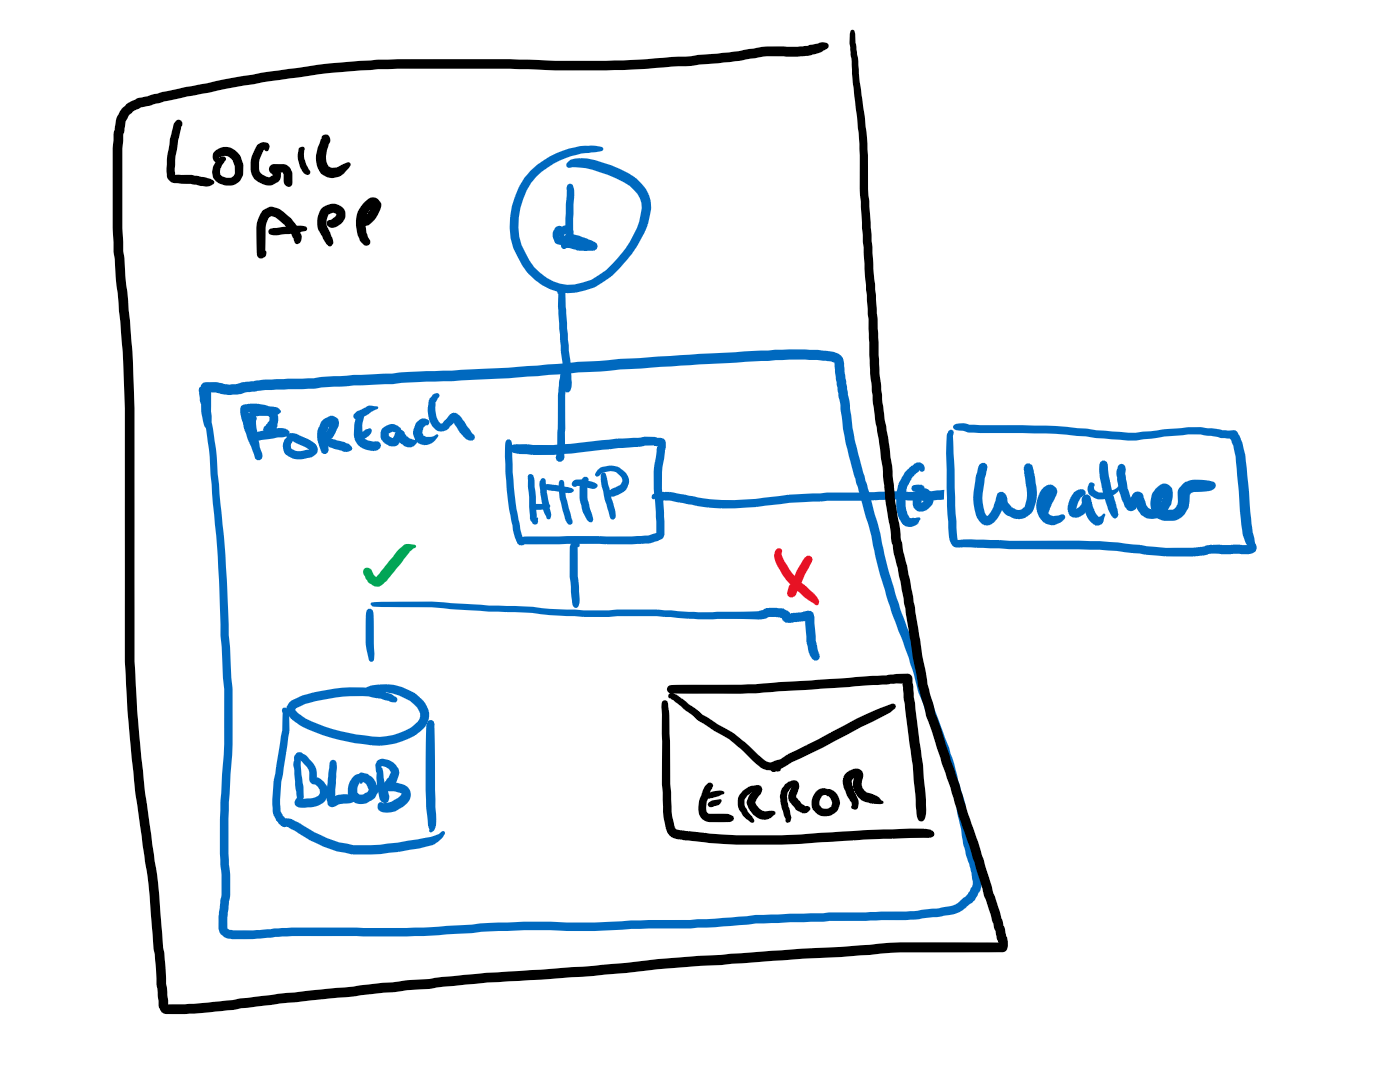 LOGIC
APP
ForEach
HTTP
Weather
BLOB
ERROR